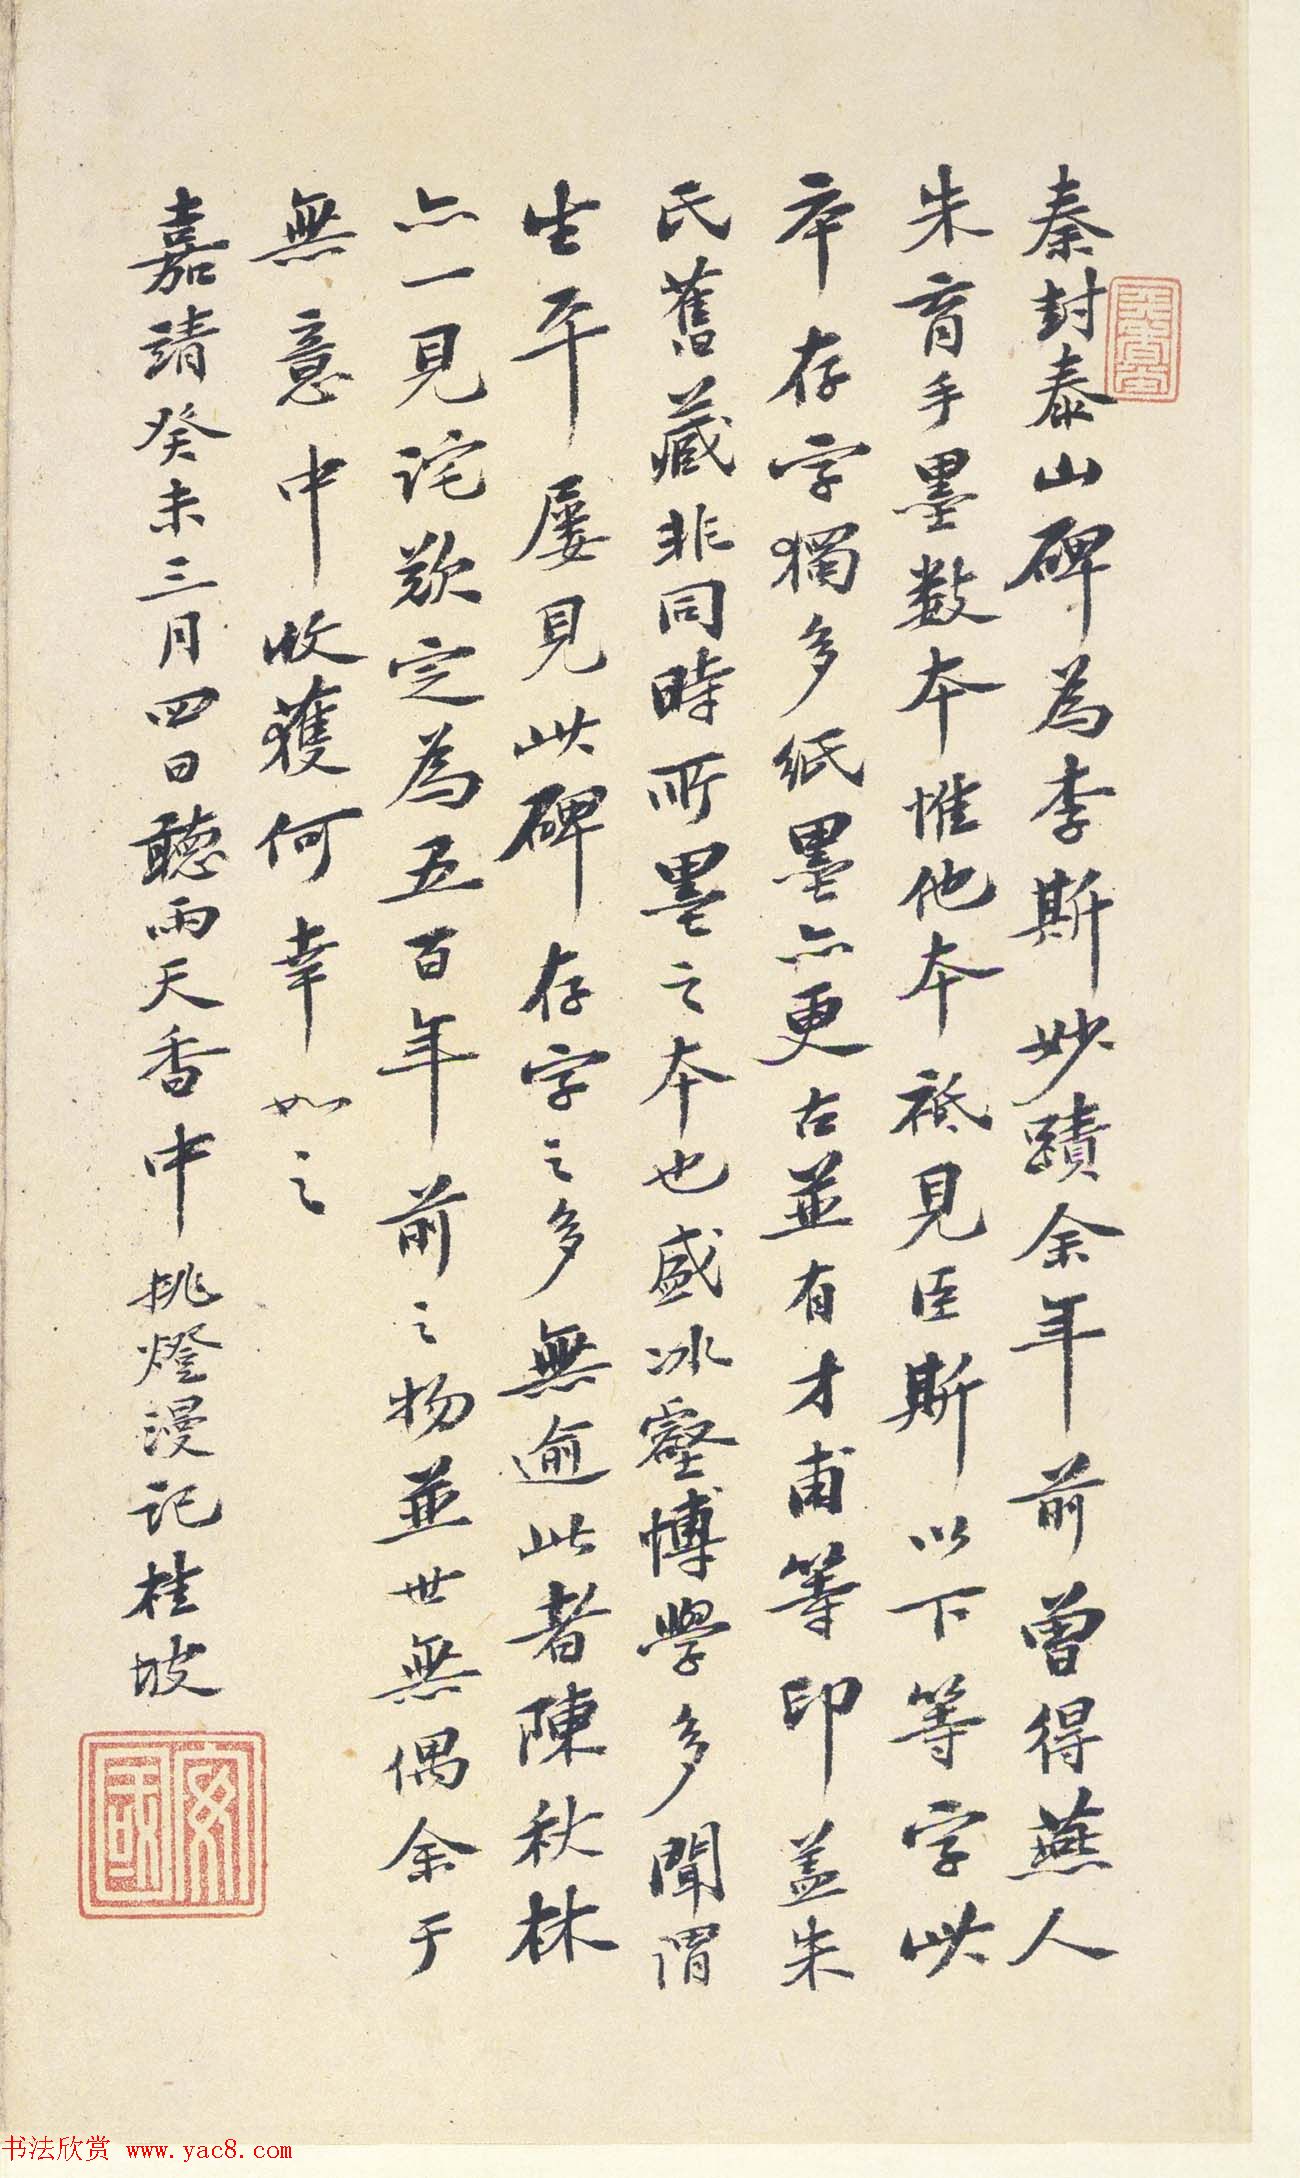 秦封泰山碑為李斯妙蹟余年前曾得燕人
朱育手墨数本惟他本祗見臣斯以下等字此
本存字獨多紙墨亦更古並有才甫等印蓋朱
氏舊藏非同時所墨之本也盛冰壑博學多聞謂
生平屡見此碑存字之多無逾此者陳秋林
亦一見詫歎定為五百年前之物並世無偶余于
無意中收獲何幸如之
嘉靖癸未三月四日聽雨天香中挑燈漫記桂坡
安國
书法欣赏 www.yac8.com